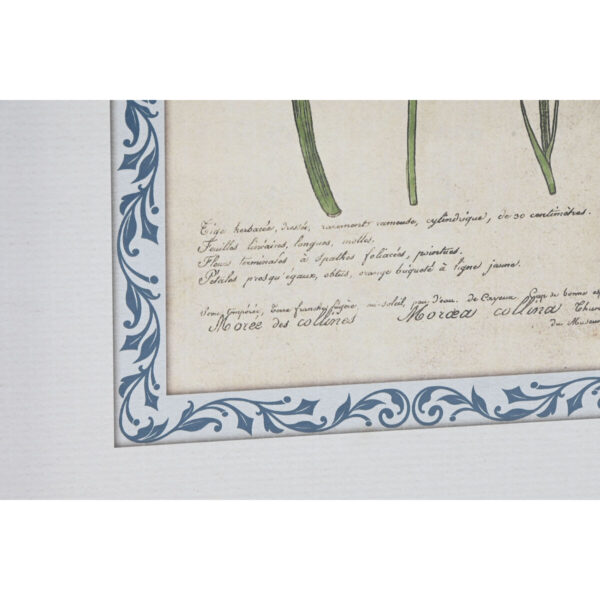 Tige herbacée, dressée, rarement rameuse, cylindrique, de 30 centimètres.
Feuilles linéaires, longues, molles.
Fleurs terminales à spathes foliacés, pointues.
Pétales presqu'égaux, obtus, orange à ligne jaune.
terre franche légère au soleil, peu d'eau. de
Morée des collines Moræa collina Thun
du Museum